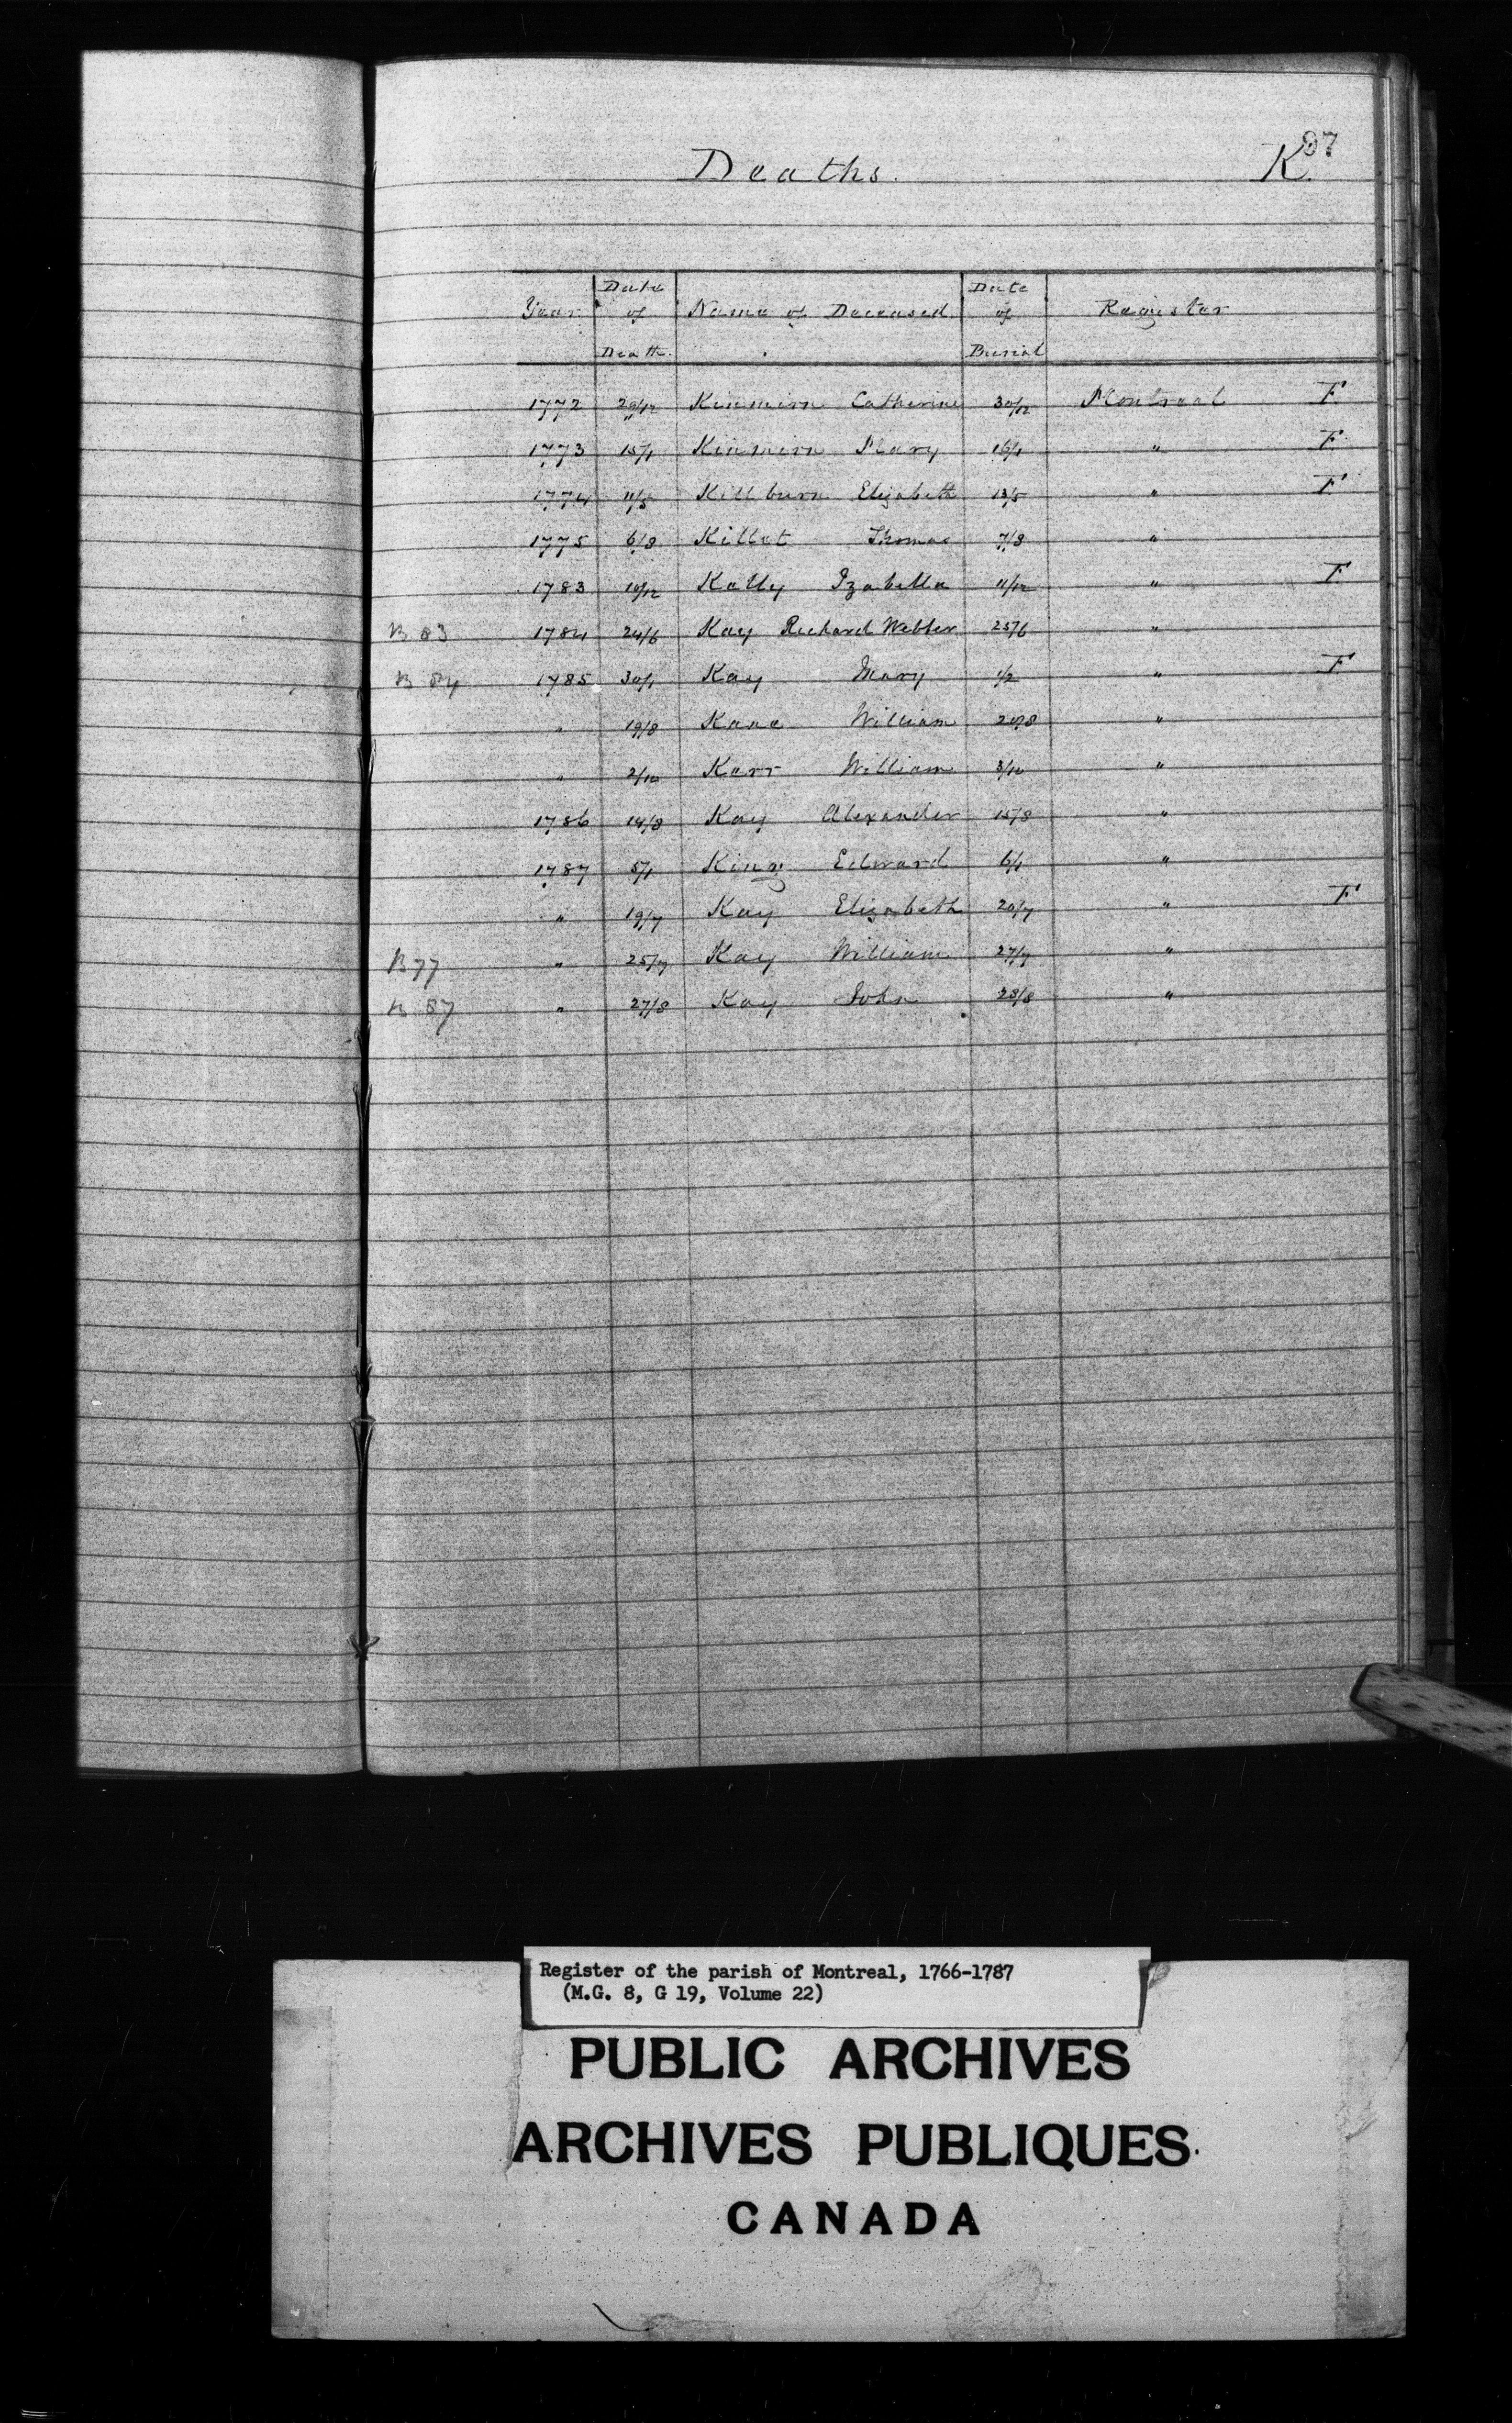 97
Deaths. K.
Year Date of Death. Name of Deceased Date of Burial Register
1772 29/12 Kinmirn Catherine 30/12 Montreal F
1773 15/1 Kinmirn Mary 16/1 " F
1774 11/5 Killburn Elizabeth 13/5 " F
1775 6/8 Killet Thomas 7/8 "
1783 10/12 Kelly Izabella 11/12 " F
B 83 1784 24/6 Kay Richard Webber 25/6 "
B 84 1785 30/1 Kay Mary 1/2 " F
" 19/8 Kane William 20/8 "
" 2/10 Kerr William 3/10 "
1786 14/8 Kay Alexander 15/8 "
1787 5/1 King Edward 6/1 "
" 19/7 Kay Elizabeth 20/7 " F
B 77 " 25/7 Kay William 27/7 "
B 87 " 27/8 Kay John 28/8 "
Register of the parish of Montreal, 1766-1787
(M.G. 8, G 19, Volume 22)
PUBLIC ARCHIVES
ARCHIVES PUBLIQUES
CANADA